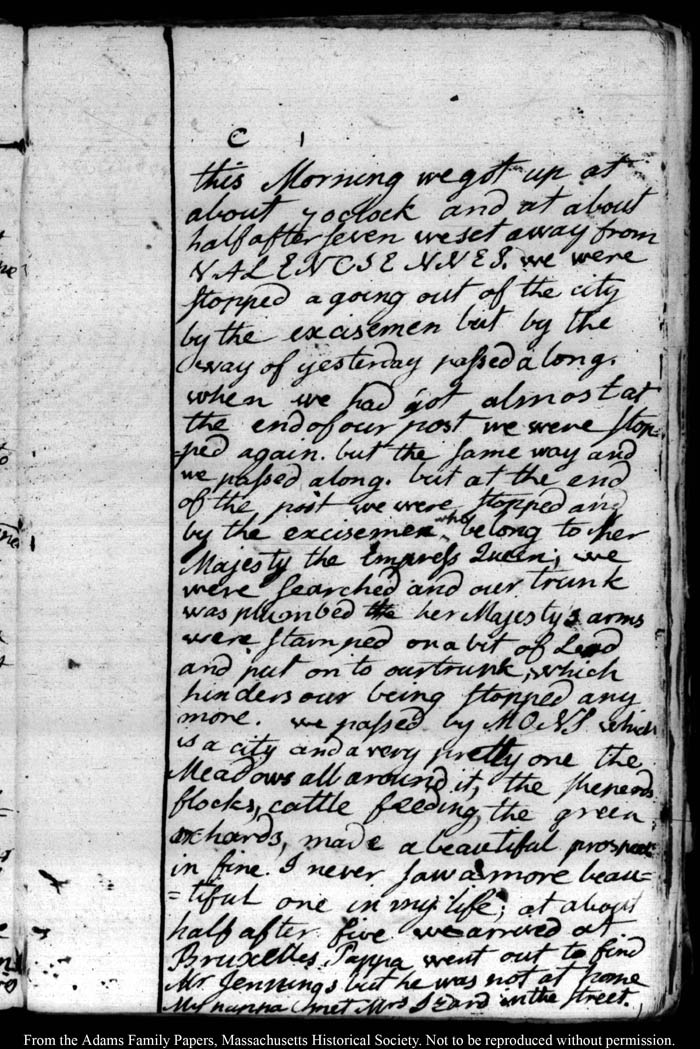 C 1
this Morning we got up at
about 7 oclock and at about
half after seven we set away from
VALENCIENNES. we were
stopped a going out of the city
by the excisemen but by the
way of yesterday passed along.
when we had got almost at
the end of our post we were stop-
=ped again. but the same way and
we passed along. but at the end
of the post we were stopped and
by the excisemen who belong to her
Majesty the Empress Queen; we
were searched and our trunk
was plumbed her Majesty's arms
were stamped on a bit of Lead
and put on to our trunk, which
hinders our being stopped any
more. we passed by MONS which
is a city and a very pretty one the
Meadows all around it, the sheperds
flocks, cattle feeding, the green
orchards, made a beautiful prospect
in fine. I never saw a more beau=
=tiful one in my life; at about
half after five we arrived at
Bruxelles Pappa went out to find
Mr Jennings but he was not at home
My pappa met Mrs Izard in the street.
From the Adams Family Papers, Massachusetts Historical Society. Not to be reproduced without permission.